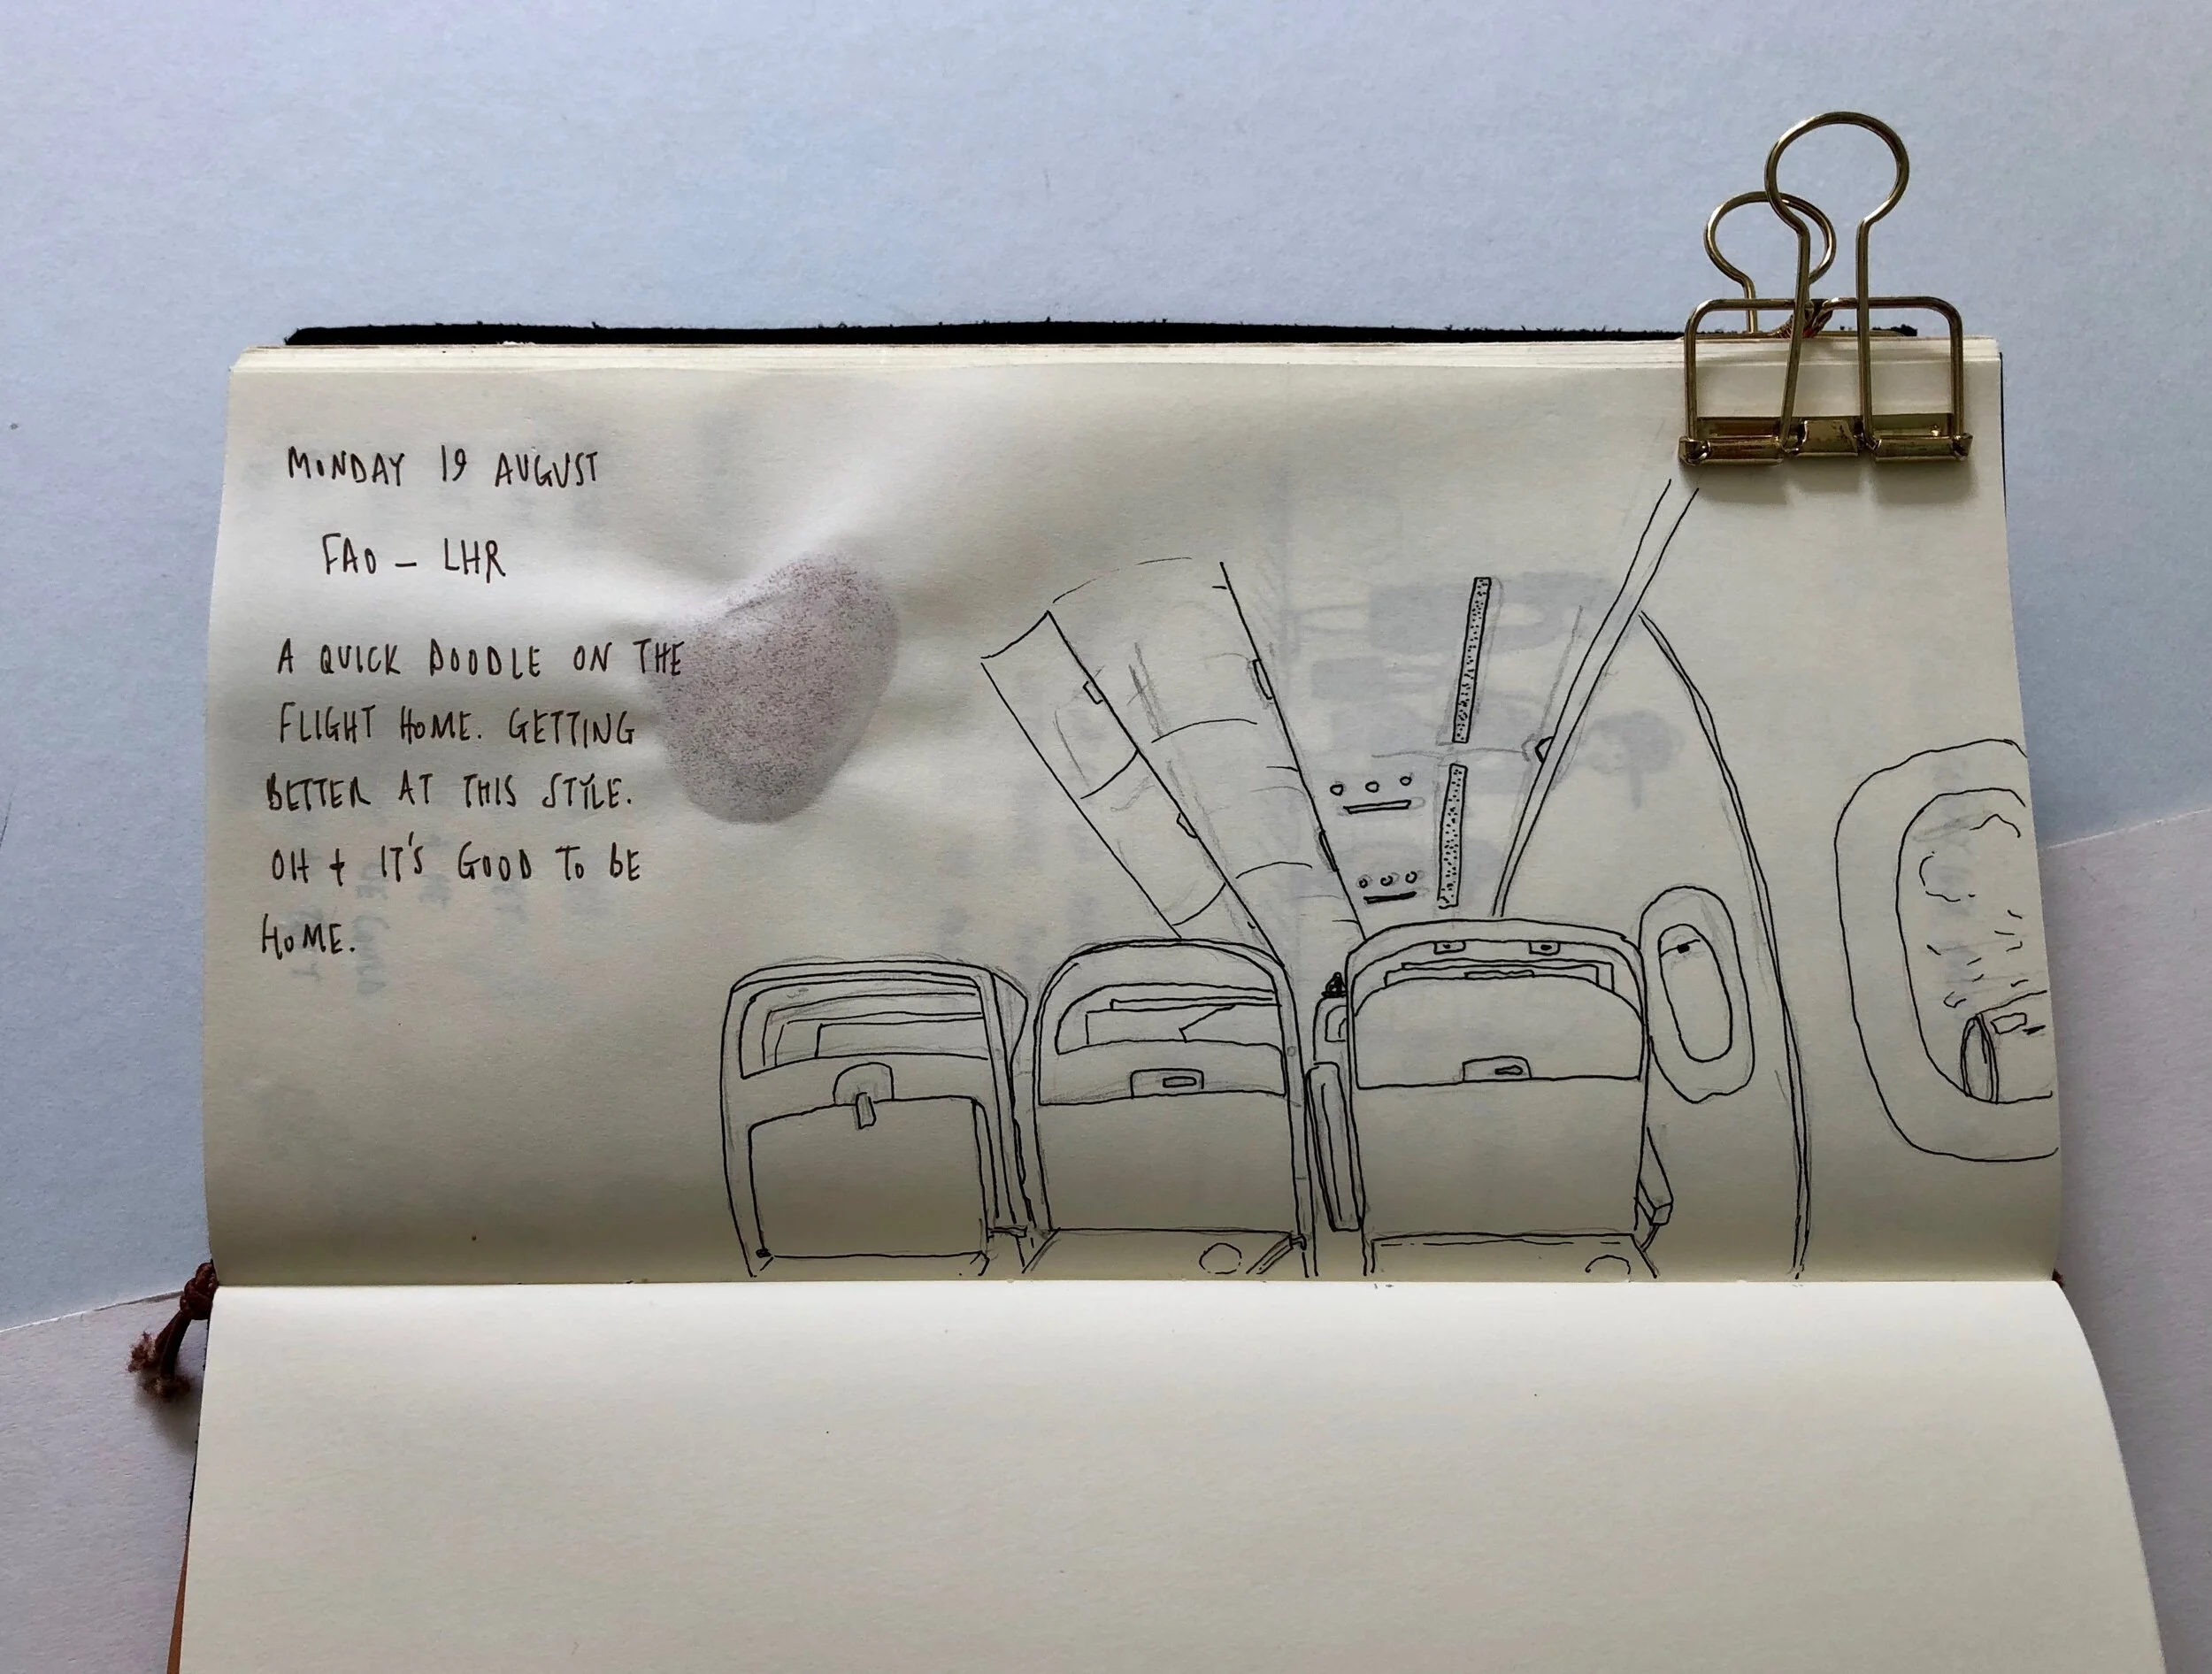 MONDAY 19 AUGUST
FAO – LHR
A QUICK DOODLE ON THE
FLIGHT HOME. GETTING
BETTER AT THIS STYLE.
OH + IT'S GOOD TO BE
HOME.